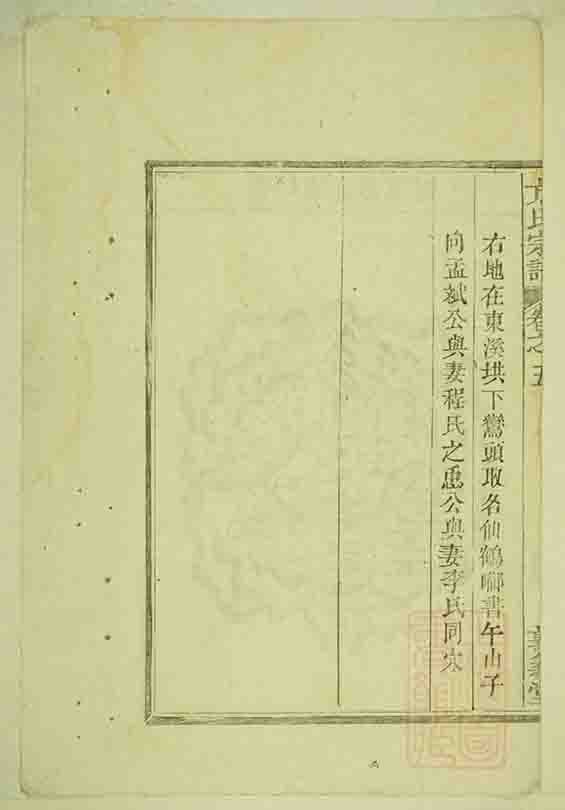 氏宗譜 卷之五
右地在東溪垬下鸞頭取名仙鶴啣書午山子
向孟斌公與妻程氏之惠公與妻李氏同穴